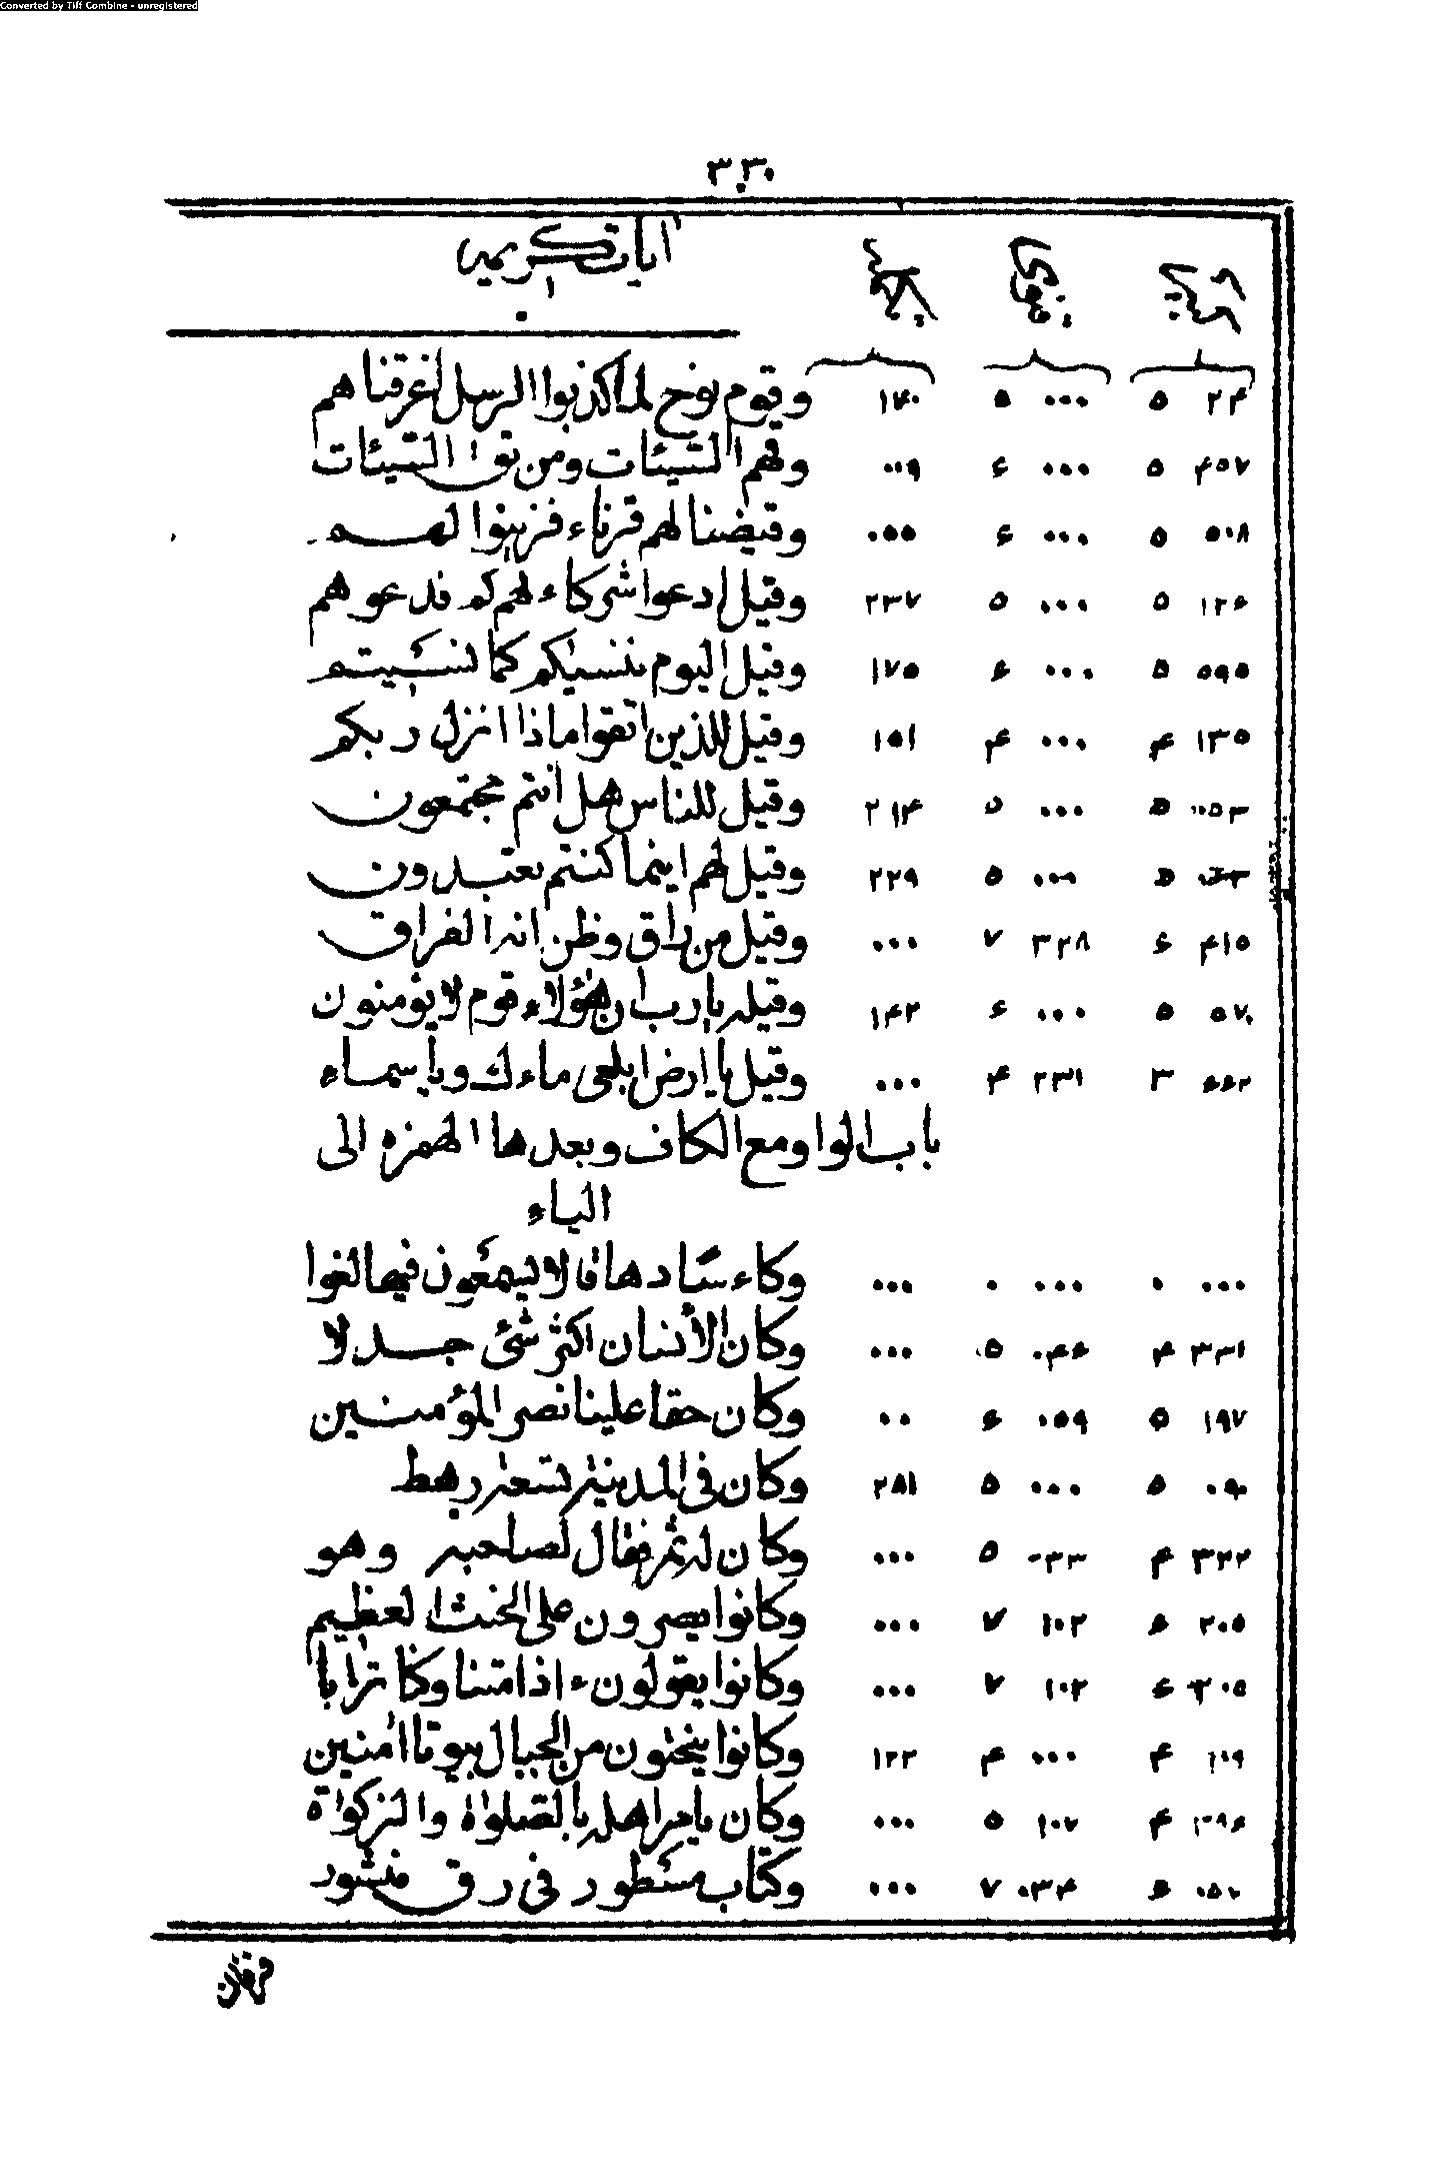 Converted by Tiff Combine - unregistered
٣٣٠
آيات كريمه
٢٤ ٥ ٠٠٠ ٥ ١٧٠ وقوم نوح لما كذبوا الرسل اغرقناهم
٤٥٧ ٥ ٠٠٠ ٤ ٠٠٩ وقهم السيئات ومن تق السيئات
٥٠٨ ٥ ٠٠٠ ٤ ٠٥٥ وقيضنا لهم قرناء فزينوا لهم
١٢٤ ٥ ٠٠٠ ٥ ٢٣٧ وقيل ادعوا شركاءهم كم فدعوهم
٥٩٥ ٥ ٠٠٠ ٤ ١٧٥ وقيل اليوم ننسيكم كما نسيتم
١٣٥ ٤ ٠٠٠ ٤ ١٥١ وقيل للذين اتقوا ماذا انزل ربكم
٠٥٣ ٥ ٠٠٠ ٥ ٢١٤ وقيل للناس هل انتم مجتمعون
٥ ٠٠٠ ٥ ٢٢٩ وقيل لهم اينما كنتم تعبدون
٤١٥ ٤ ٣٢٨ ٧ ٠٠٠ وقيل من راق وظن انه الفراق
٥٧٠ ٥ ٠٠٠ ٤ ١٤٢ وقيله يارب ان هؤلاء قوم لا يؤمنون
٤٤٢ ٣ ٢٣١ ٤ ٠٠٠ وقيل يا ارض ابلعى ماءك ويا سماء
باب الواو مع الكاف وبعدها الهمزه الى
الياء
٠٠٠ ٠ ٠٠٠ ٠ ٠٠٠ وكاء سا دهاقا لا يسمعون فيها لغوا
٣٣١ ٤ ٠٤٤ ٥ ٠٠٠ وكان الأنسان اكثر شئ جدلا
١٩٧ ٥ ٠٥٩ ٤ ٠٠ وكان حقا علينا نصر المؤمنين
٠٩٠ ٥ ٠٠٠ ٥ ٢٨١ وكان فى المدينة تسعة رهط
٣٢٢ ٤ ٠٣٣ ٥ ٠٠٠ وكان له ثمر فقال لصاحبه وهو
٢٠٥ ٤ ١٠٢ ٧ ٠٠٠ وكانوا يصرون على الحنث العظيم
٢٠٥ ٤ ١٠٢ ٧ ٠٠٠ وكانوا يقولون ءاذا متنا وكنا ترابا
١٠٩ ٤ ٠٠٠ ٤ ١٢٢ وكانوا ينحتون من الجبال بيوتا امنين
٣٩٤ ٤ ١٠٧ ٥ ٠٠٠ وكان يامر اهله بالصلواة والزكواة
٠٥٠ ٤ ٠٣٤ ٧ ٠٠٠ وكتاب مسطور فى رق منشور